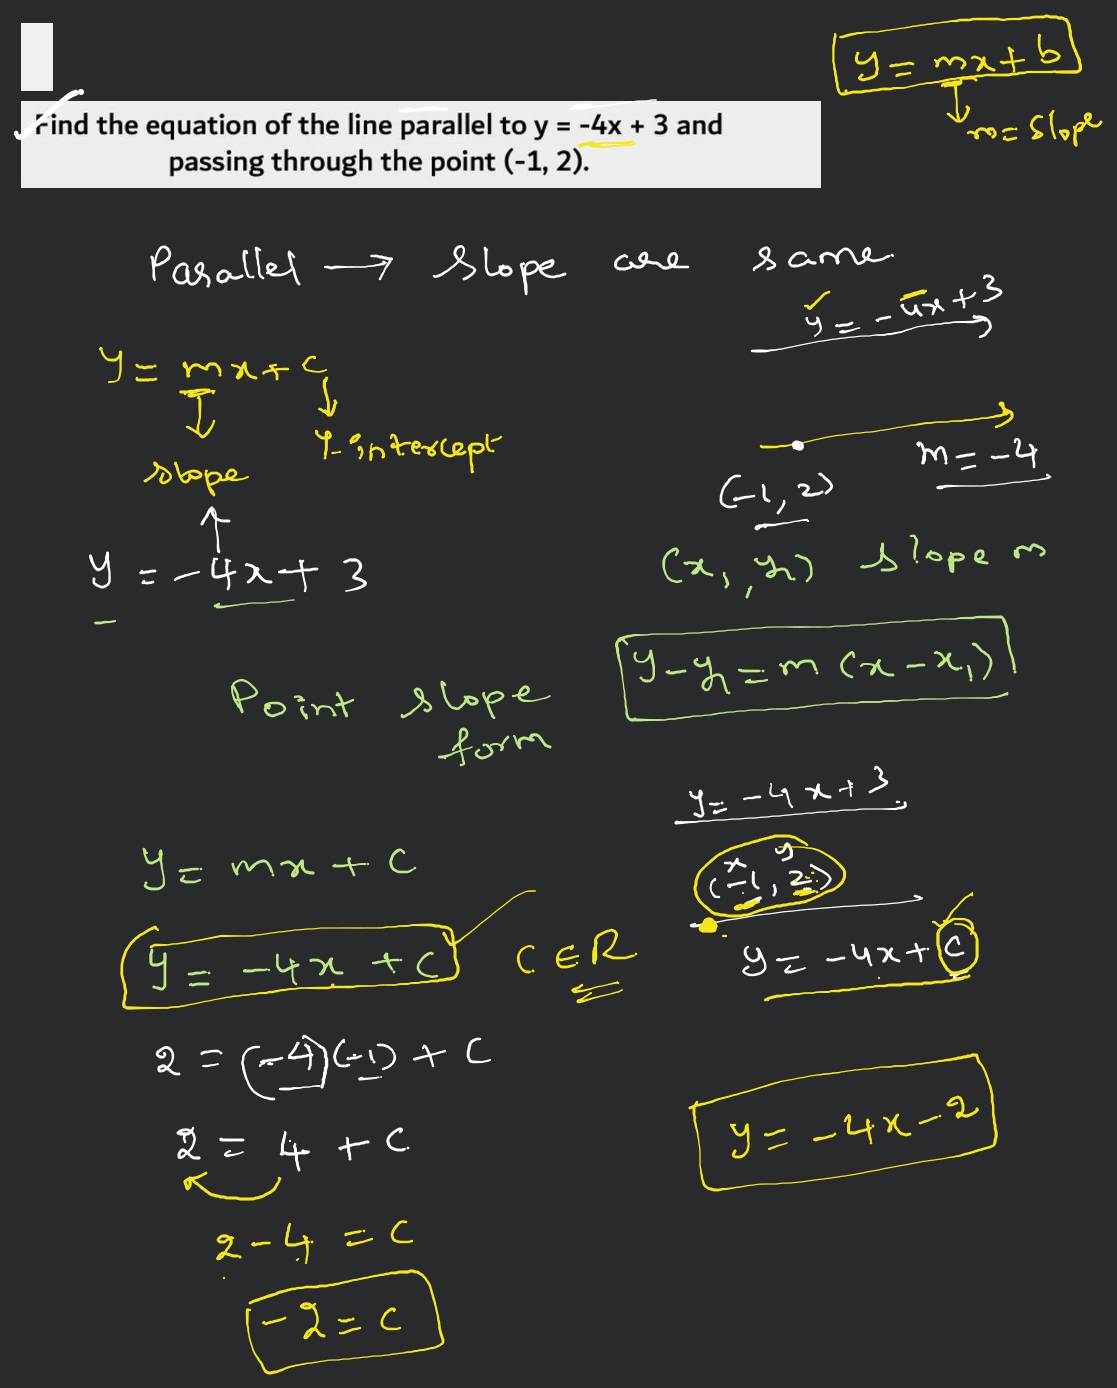 y = mx + b
m = slope
Find the equation of the line parallel to y = -4x + 3 and
passing through the point (-1, 2).
Parallel → slope are same
y = -4x + 3
y = mx + c
slope
Y-intercept
(-1, 2)
m = -4
y = -4x + 3
(x₁, y₁) slope m
y - y₁ = m (x - x₁)
Point slope
form
y = -4x + 3
x y
(-1, 2)
y = mx + c
y = -4x + c
C ∈ R
y = -4x + c
2 = (-4)(-1) + c
2 = 4 + c
y = -4x - 2
2 - 4 = c
-2 = c